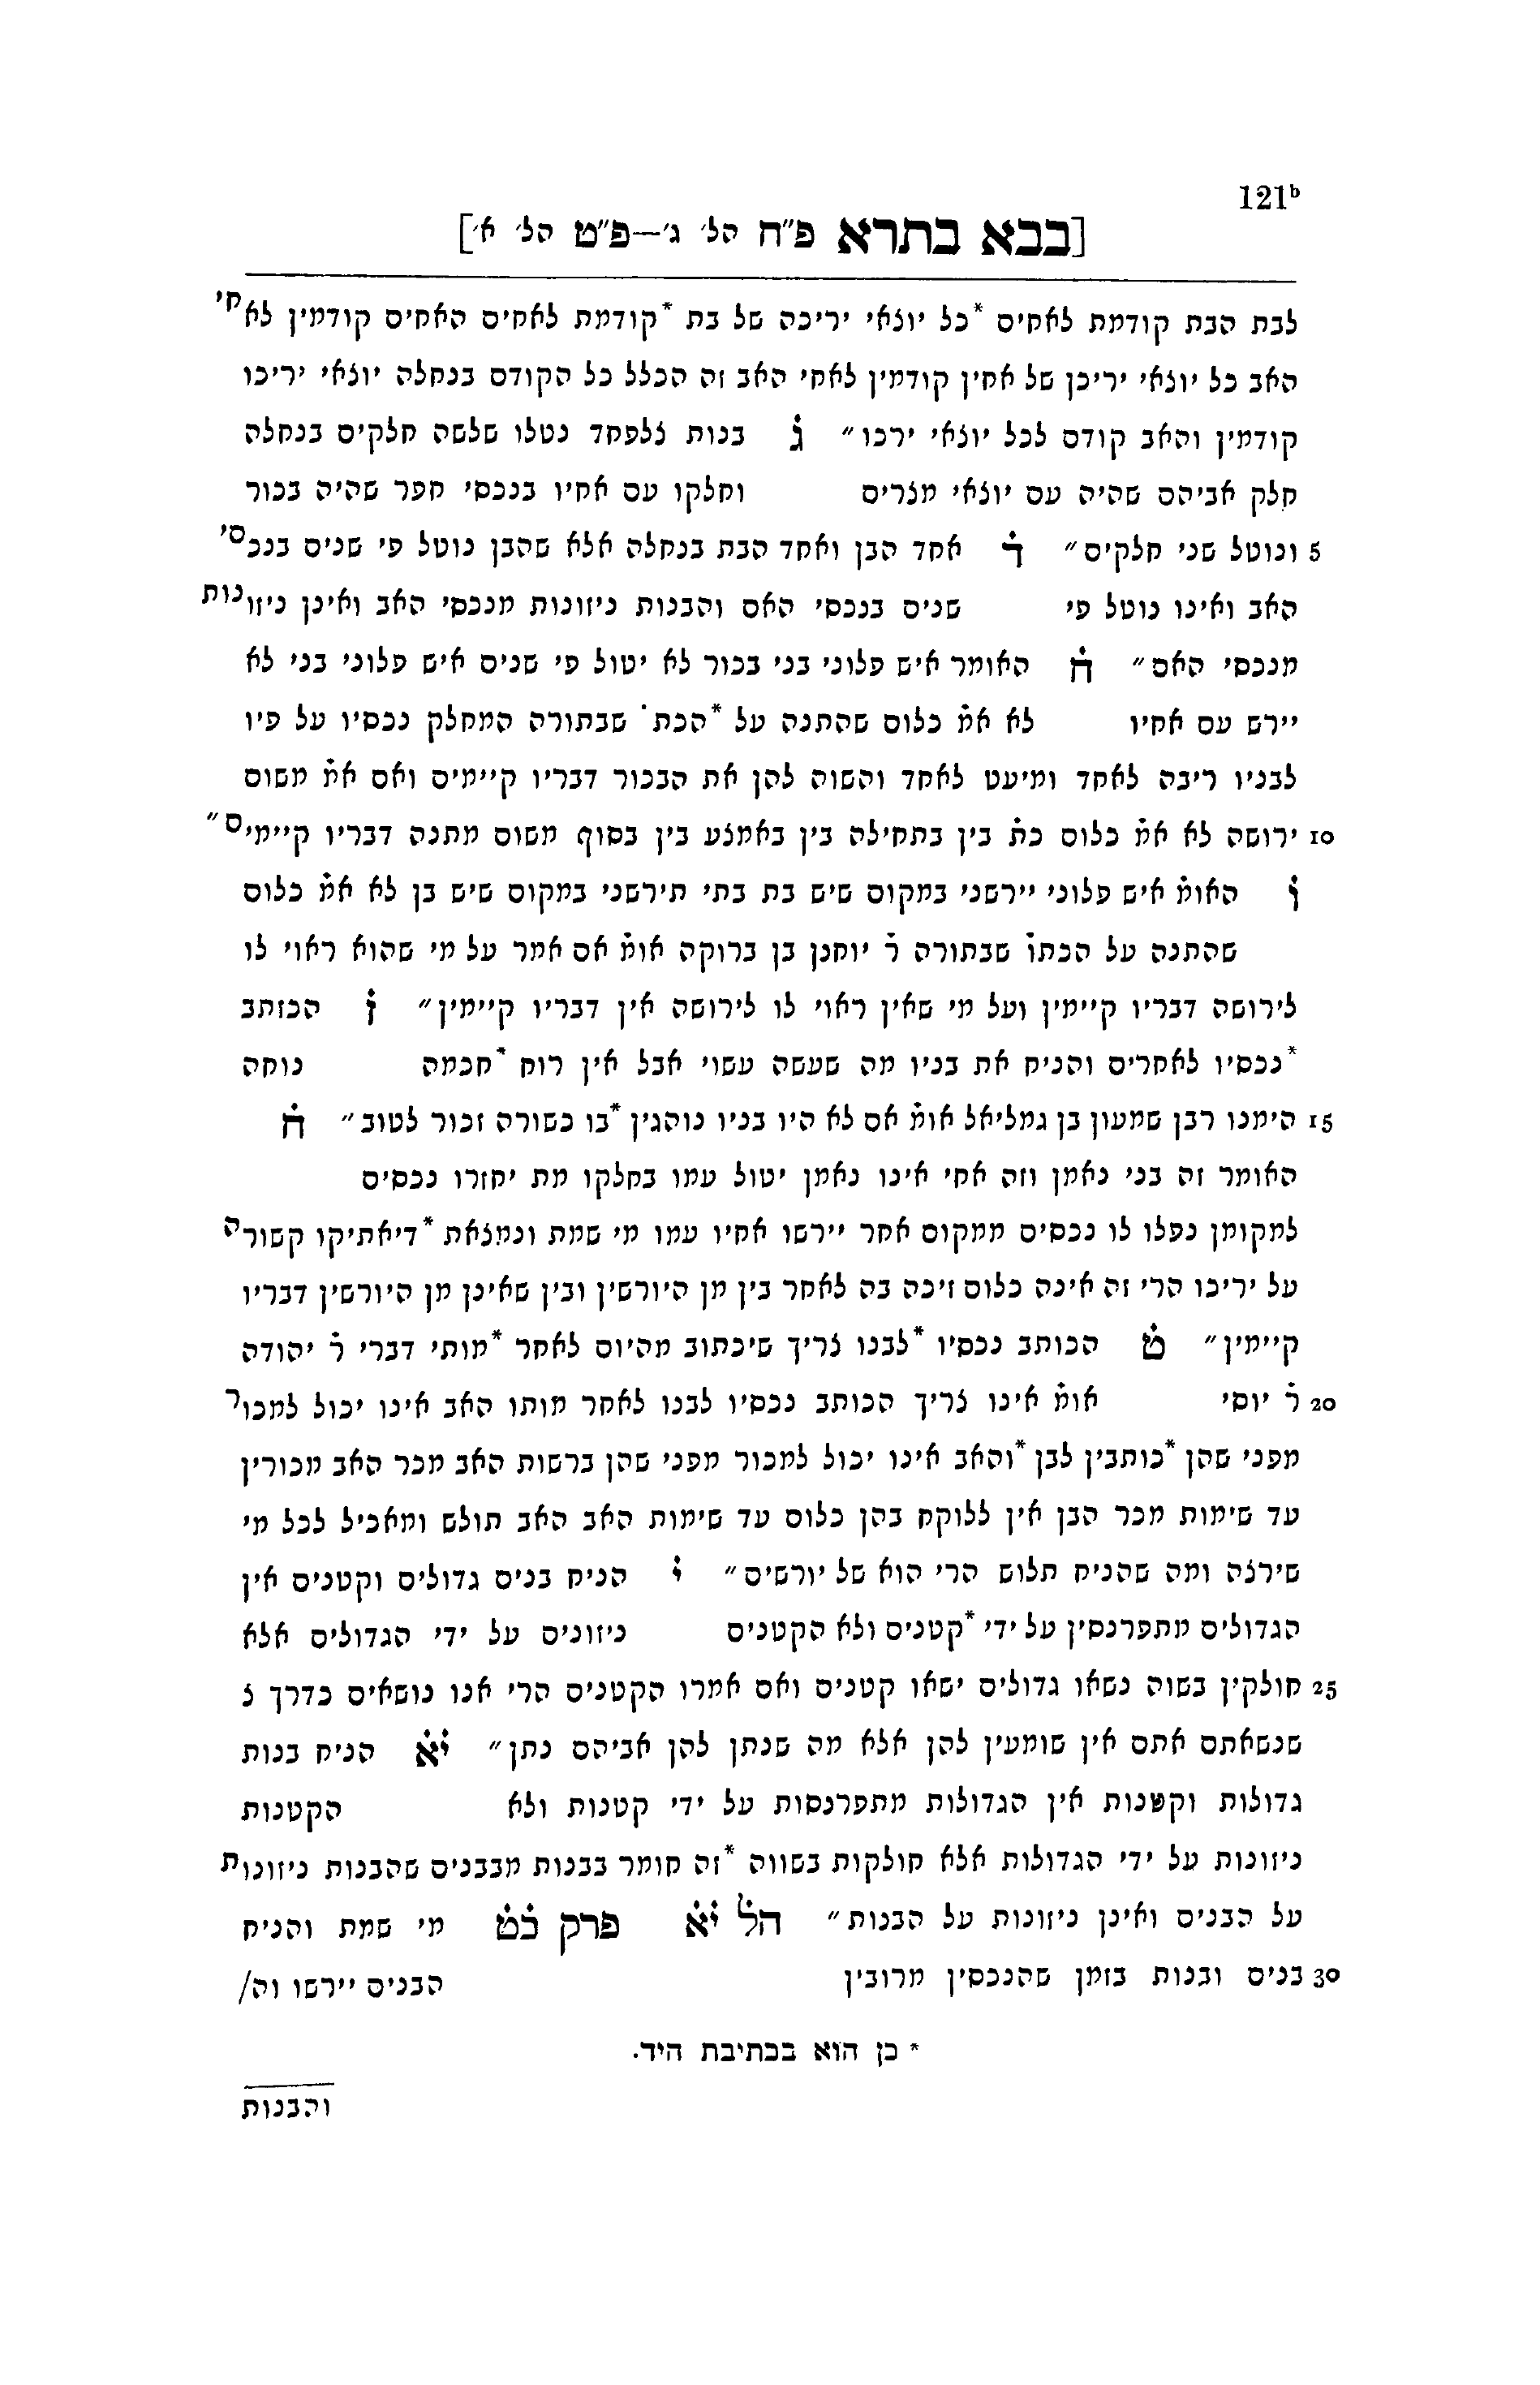 121ᵇ
[בבא בתרא פ״ח הל׳ ג׳—פ״ט הל׳ א׳]
לבת הבת קודמת לאחים *כל יוצאי יריכה של בת *קודמת לאחים האחים קודמין לאחי
האב כל יוצאי יריכן של אחין קודמין לאחי האב זה הכלל כל הקודם בנחלה יוצאי יריכו
קודמין והאב קודם לכל יוצאי ירכו״ ג בנות צלפחד נטלו שלשה חלקים בנחלה
חלק אביהם שהיה עם יוצאי מצרים וחלקו עם אחיו בנכסי חפר שהיה בכור
5 ונוטל שני חלקים״ ד אחד הבן ואחד הבת בנחלה אלא שהבן נוטל פי שנים בנכסי
האב ואינו נוטל פי שנים בנכסי האם והבנות ניזונות מנכסי האב ואינן ניזונות
מנכסי האם״ ה האומר איש פלוני בני בכור לא יטול פי שנים איש פלוני בני לא
יירש עם אחיו לא אמ̇ כלום שהתנה על *הכת̇ שבתורה המחלק נכסיו על פיו
לבניו ריבה לאחד ומיעט לאחד והשוה להן את הבכור דבריו קיימים ואם אמ̇ משום
10 ירושה לא אמ̇ כלום כת̇ בין בתחילה בין באמצע בין בסוף משום מתנה דבריו קיימים״
ו האומ̇ איש פלוני יירשני במקום שיש בת בתי תירשני במקום שיש בן לא אמ̇ כלום
שהתנה על הכתו̇ שבתורה ר̇ יוחנן בן ברוקה אומ̇ אם אמר על מי שהוא ראוי לו
לירושה דבריו קיימין ועל מי שאין ראוי לו לירושה אין דבריו קיימין״ ז הכותב
*נכסיו לאחרים והניח את בניו מה שעשה עשוי אבל אין רוח *חכמה נוחה
15 הימנו רבן שמעון בן גמליאל אומ̇ אם לא היו בניו נוהגין *בו כשורה זכור לטוב״ ח
האומר זה בני נאמן וזה אחי אינו נאמן יטול עמו בחלקו מת יחזרו נכסים
למקומן נפלו לו נכסים ממקום אחר יירשו אחיו עמו מי שמת ונמצאת *דיאתיקו קשורה
על יריכו הרי זה אינה כלום זיכה בה לאחר בין מן היורשין ובין שאינן מן היורשין דבריו
קיימין״ ט הכותב נכסיו *לבנו צריך שיכתוב מהיום לאחר *מותי דברי ר̇ יהודה
20 ר̇ יוסי אומ̇ אינו צריך הכותב נכסיו לבנו לאחר מותו האב אינו יכול למכור
מפני שהן *כותבין לבן *והאב אינו יכול למכור מפני שהן ברשות האב מכר האב מכורין
עד שימות מכר הבן אין ללוקח בהן כלום עד שימות האב האב תולש ומאכיל לכל מי
שירצה ומה שהניח תלוש הרי הוא של יורשים״ י הניח בנים גדולים וקטנים אין
הגדולים מתפרנסין על ידי *קטנים ולא הקטנים ניזונים על ידי הגדולים אלא
25 חולקין בשוה נשאו גדולים ישאו קטנים ואם אמרו הקטנים הרי אנו נושאים כדרך צ
שנשאתם אתם אין שומעין להן אלא מה שנתן להן אביהם נתן״ יא הניח בנות
גדולות וקטנות אין הגדולות מתפרנסות על ידי קטנות ולא הקטנות
ניזונות על ידי הגדולות אלא חולקות בשווה *זה חומר בבנות מבבנים שהבנות ניזונות
על הבנים ואינן ניזונות על הבנות״ הל̇ יא̇ פרק כ̇ט̇ מי שמת והניח
30 בנים ובנות בזמן שהנכסין מרובין הבנים יירשו וה/
* כן הוא בכתיבת היד.
והבנות